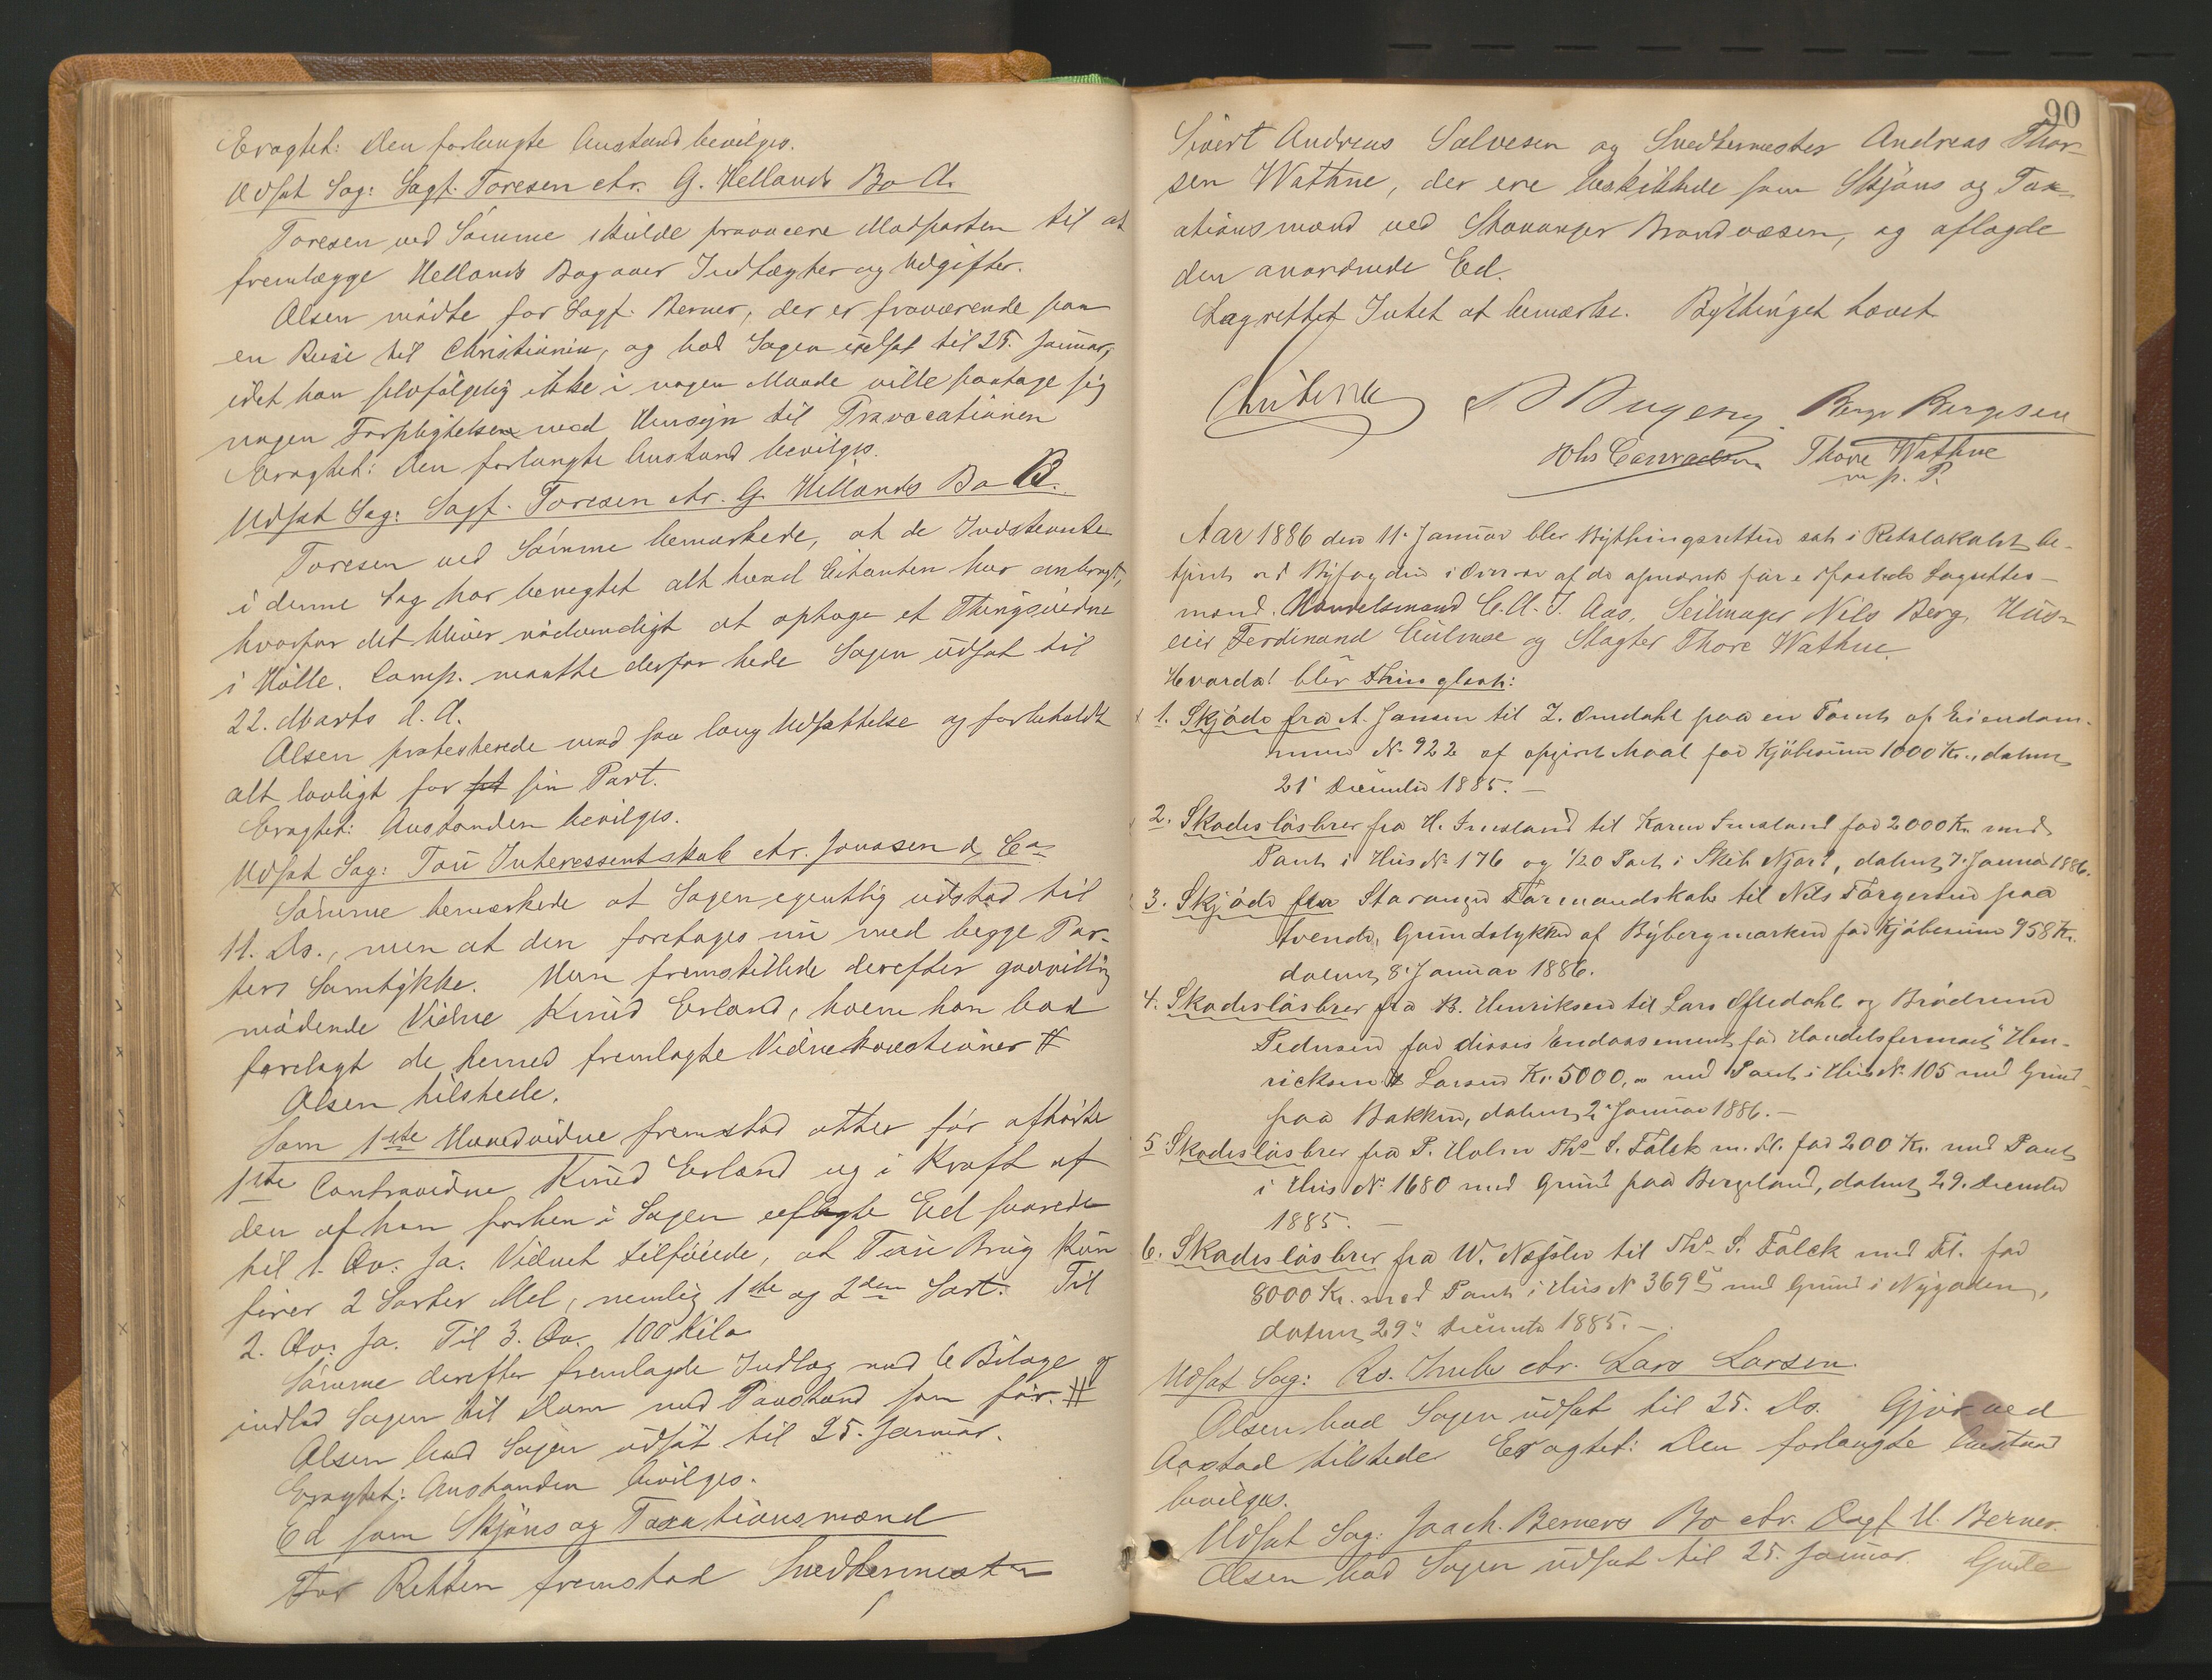 Eragtet: Den forlangte Anstand bevilges.
Udsat Sag: Sagf. Toresen ctr. G. Hellands Bo A.
Toresen ved Sømme skulde provocere Modparten til at
fremlægge Hellands Bog over Indtægter og Udgifter.
Olsen mødte for Sagf. Berner, der er fraværende paa
en Reise til Christiania, og bad Sagen udsat til 25. Januar,
idet han selvfølgelig ikke i nogen Maade ville paatage sig
nogen Forpligtelse med Hensyn til Provocationen
Eragtet: Den forlangte Anstand bevilges.
Udsat Sag: Sagf. Toresen ctr. G. Hellands Bo B.
Toresen ved Sømme bemærkede, at de Indstevnte
i denne Sag har benegtet alt hvad Citanten har anbragt,
hvorfor det bliver nødvendigt at optage et Thingsvidne
i Hølle. Comp. maatte derfor bede Sagen udsat til
22. Marts d. A.
Olsen protesterede mod saa lang Udsættelse og forbeholdt
alt lovligt for sin Part.
Eragtet: Anstanden bevilges.
Udsat Sag: Tou Interessentskab ctr. Jonasen & Co
Sømme bemærkede at Sagen egentlig udstod til
11. Ds., men at den foretages nu med begge Par-
ters Samtykke. Han fremstillede derefter godvillig
mødende Vidne Knud Erland, hvem han bad
forelagt de hermed fremlagte Vidnekvæstioner #
Olsen tilstede.
Som 1ste Hovedvidne fremstod atter før afhørte
1ste Contravidne Knud Erland og i Kraft af
den af ham forhen i Sagen aflagte Ed svarede
til 1. Qv: Ja. Vidnet tilføiede, at Tou Brug kun
fører 2 Sorter Mel, nemlig 1ste og 2den Sort. Til
2. Qv: Ja. Til 3. Qv. 100 Kilo
Sømme derefter fremlagde Indlæg med 6 Bilage og
indlod Sagen til Dom med Paastand som før. #
Olsen bad Sagen udsat til 25. Januar.
Eragtet: Anstanden bevilges.
Ed som Skjøns og Taxationsmænd
For Retten fremstod Snedkermester
90
Sivert Andreas Salvesen og Snedkermester Andreas Thor-
sen Wathne, der ere beskikkede som Skjøns og Tax-
ationsmænd ved Stavanger Brandvæsen, og aflagde
den anordnede Ed.
Lagrettet Intet at bemærke. Bythinget hævet
Børge Børgesen
Johs Conradsen Thore Wathne
m. p. P.
Aar 1886 den 11. Januar blev Bythingsretten sat i Retslokalet be-
tjent ved Byfogden i Overvær af de opnævnte før edfæstede Lagrettes-
mænd. Handelsmand C. A. J. Aas, Seilmager Nils Berg, Hus-
eier Ferdinand Gulmse og Slagter Thore Wathne.
Hvorda! blev thinglæst:
1. Skjøde fra A. Jansen til Z. Omdahl paa en Tomt af Eiendom-
men No 922 af opgivet Maal for Kjøbesum 1000 Kr., datert
21 December 1885. —
2. Skadesløsbrev fra H. Imsland til Karen Imsland for 2000 Kr. med
Pant i Hus No 176 og 1/20 Part i Skib Njord, datert 7. Januar 1886.
3. Skjøde fra Stavanger Formandskab til Nils Torgersen paa
tvende Grundstykker af Bybergmarken for Kjøbesum 958 Kr.
datert 8. Januar 1886.
4. Skadesløsbrev fra B. Henriksen til Lars Oftedahl og Brødrene
Pedersen for disses Endossement for Handelsfirmaet Hen-
ricksen & Larsen Kr. 5000, - med Pant i Hus No 105 med Grund
paa Bakken, datert 2. Januar 1886. —
5 Skadesløsbrev fra P. Holm Ths S. Falck m. Fl. for 200 Kr. med Pant
i Hus No 1680 med Grund paa Bergeland, datert 29. December
1885. —
6. Skadesløsbrev fra W. Næsler til Ths S. Falck med Fl. for
8000 Kr. med Pant i Hus No 369 med Grund i Nygaden,
datert 29 December 1885. —
Udsat Sag: Rs. ctr. Lars Larsen.
Olsen bad Sagen udsat til 25. Ds. Gjør ved
Aastad tilstede Eragtet: Den forlangte Anstand
bevilges.
Udsat Sag: Joach. Berners Bo ctr. Sagf. H. Berner.
Olsen bad Sagen udsat til 25. Januar. Gude